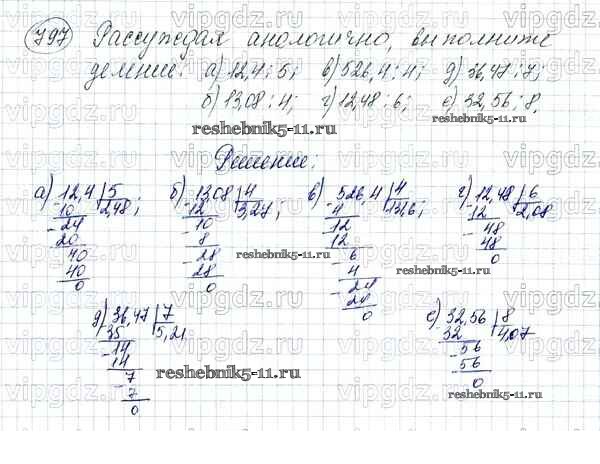 797 Рассуждая аналогично, выполните
деление: а) 12,4 : 5; в) 526,4 : 4; д) 36,47 : 7;
б) 13,08 : 4; г) 12,48 : 6; е) 32,56 : 8.
reshebnik5-11.ru
Решение:
а) 12,4 | 5
10 2,48;
- 24
20
40
40
0
б) 13,08 | 4
- 12 3,27;
10
8
- 28
- 28
0
reshebnik5-11.ru
в) - 526,4 | 4
4 131,6;
12
12
- 6
4
- 24
24
0
г) - 12,48 | 6
12 2,08
- 48
48
0
reshebnik5-11.ru
д) 36,47 | 7
35 5,21
- 14
14
- 7
7
0
reshebnik5-11.ru
е) 32,56 | 8
32 4,07
- 56
56
0
reshebnik5-11.ru
vipgdz.ru